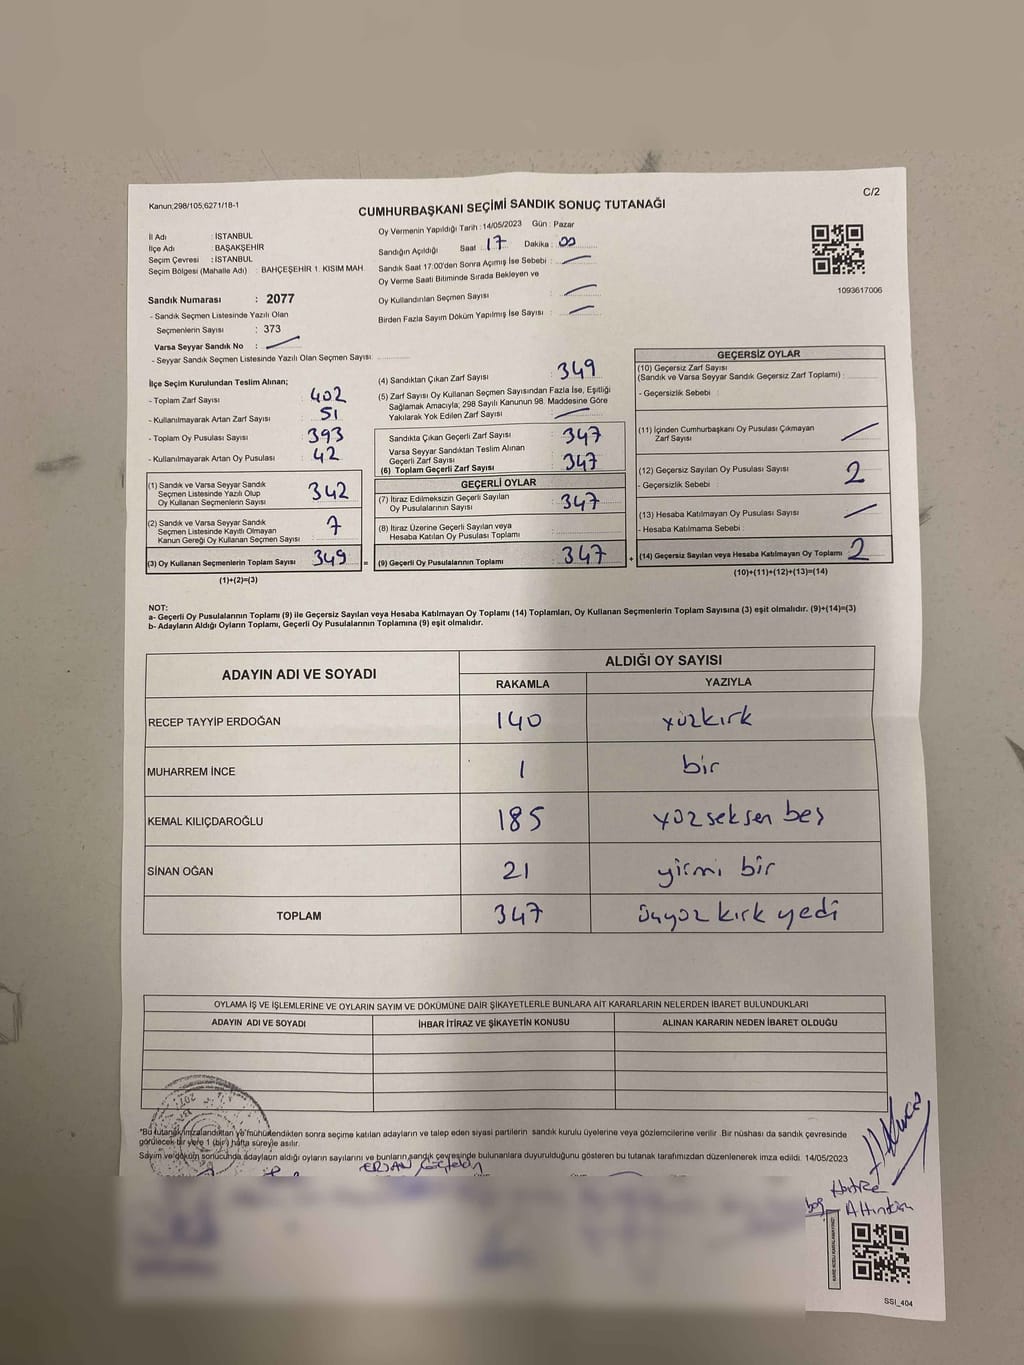 Kanun;298/105,6271/18-1
C/2
CUMHURBAŞKANI SEÇİMİ SANDIK SONUÇ TUTANAĞI
İl Adı : İSTANBUL
İlçe Adı : BAŞAKŞEHİR
Seçim Çevresi : İSTANBUL
Seçim Bölgesi (Mahalle Adı) : BAHÇEŞEHİR 1. KISIM MAH
Sandık Numarası : 2077
- Sandık Seçmen Listesinde Yazılı Olan
Seçmenlerin Sayısı : 373
Varsa Seyyar Sandık No :
- Seyyar Sandık Seçmen Listesinde Yazılı Olan Seçmen Sayısı:
Oy Vermenin Yapıldığı Tarih : 14/05/2023 Gün : Pazar
Sandığın Açıldığı Saat 17 Dakika : 00
Sandık Saat 17:00'den Sonra Açımış İse Sebebi :
Oy Verme Saati Bitiminde Sırada Bekleyen ve
Oy Kullandırılan Seçmen Sayısı :
Birden Fazla Sayım Döküm Yapılmış İse Sayısı :
1093617006
İlçe Seçim Kurulundan Teslim Alınan;
- Toplam Zarf Sayısı : 402
- Kullanılmayarak Artan Zarf Sayısı : 51
- Toplam Oy Pusulası Sayısı : 393
- Kullanılmayarak Artan Oy Pusulası : 42
(1) Sandık ve Varsa Seyyar Sandık
Seçmen Listesinde Yazılı Olup
Oy Kullanan Seçmenlerin Sayısı 342
(2) Sandık ve Varsa Seyyar Sandık
Seçmen Listesinde Kayıtlı Olmayan
Kanun Gereği Oy Kullanan Seçmen Sayısı : 7
(3) Oy Kullanan Seçmenlerin Toplam Sayısı 349 =
(1)+(2)=(3)
(4) Sandıktan Çıkan Zarf Sayısı : 349
(5) Zarf Sayısı Oy Kullanan Seçmen Sayısından Fazla İse, Eşitliği
Sağlamak Amacıyla; 298 Sayılı Kanunun 98. Maddesine Göre
Yakılarak Yok Edilen Zarf Sayısı :
Sandıkta Çıkan Geçerli Zarf Sayısı : 347
Varsa Seyyar Sandıktan Teslim Alınan
Geçerli Zarf Sayısı :
(6) Toplam Geçerli Zarf Sayısı 347
GEÇERLİ OYLAR
(7) İtiraz Edilmeksizin Geçerli Sayılan
Oy Pusulalarının Sayısı : 347
(8) İtiraz Üzerine Geçerli Sayılan veya
Hesaba Katılan Oy Pusulası Toplamı :
(9) Geçerli Oy Pusulalarının Toplamı 347 +
GEÇERSİZ OYLAR
(10) Geçersiz Zarf Sayısı
(Sandık ve Varsa Seyyar Sandık Geçersiz Zarf Toplamı) :
- Geçersizlik Sebebi :
(11) İçinden Cumhurbaşkanı Oy Pusulası Çıkmayan
Zarf Sayısı :
(12) Geçersiz Sayılan Oy Pusulası Sayısı : 2
- Geçersizlik Sebebi :
(13) Hesaba Katılmayan Oy Pusulası Sayısı :
- Hesaba Katılmama Sebebi :
(14) Geçersiz Sayılan veya Hesaba Katılmayan Oy Toplamı 2
(10)+(11)+(12)+(13)=(14)
NOT:
a- Geçerli Oy Pusulalarının Toplamı (9) ile Geçersiz Sayılan veya Hesaba Katılmayan Oy Toplamı (14) Toplamları, Oy Kullanan Seçmenlerin Toplam Sayısına (3) eşit olmalıdır. (9)+(14)=(3)
b- Adayların Aldığı Oyların Toplamı, Geçerli Oy Pusulalarının Toplamına (9) eşit olmalıdır.
ADAYIN ADI VE SOYADI ALDIĞI OY SAYISI
RAKAMLA YAZIYLA
RECEP TAYYİP ERDOĞAN 140 yüzkırk
MUHARREM İNCE 1 bir
KEMAL KILIÇDAROĞLU 185 yüzseksen beş
SİNAN OĞAN 21 yirmi bir
TOPLAM 347 üçyüz kırk yedi
OYLAMA İŞ VE İŞLEMLERİNE VE OYLARIN SAYIM VE DÖKÜMÜNE DAİR ŞİKAYETLERLE BUNLARA AİT KARARLARIN NELERDEN İBARET BULUNDUKLARI
ADAYIN ADI VE SOYADI İHBAR İTİRAZ VE ŞİKAYETİN KONUSU ALINAN KARARIN NEDEN İBARET OLDUĞU
2077
*Bu tutanak imzalandıktan ve mühürlendikten sonra seçime katılan adayların ve talep eden siyasi partilerin sandık kurulu üyelerine veya gözlemcilerine verilir .Bir nüshası da sandık çevresinde
görülecek bir yere 1 (bir) hafta süreyle asılır.
Sayım ve döküm sonucunda adayların aldığı oyların sayılarını ve bunların sandık çevresinde bulunanlara duyurulduğunu gösteren bu tutanak tarafımızdan düzenlenerek imza edildi. 14/05/2023
Hatice
Altıntaş
SSI_404